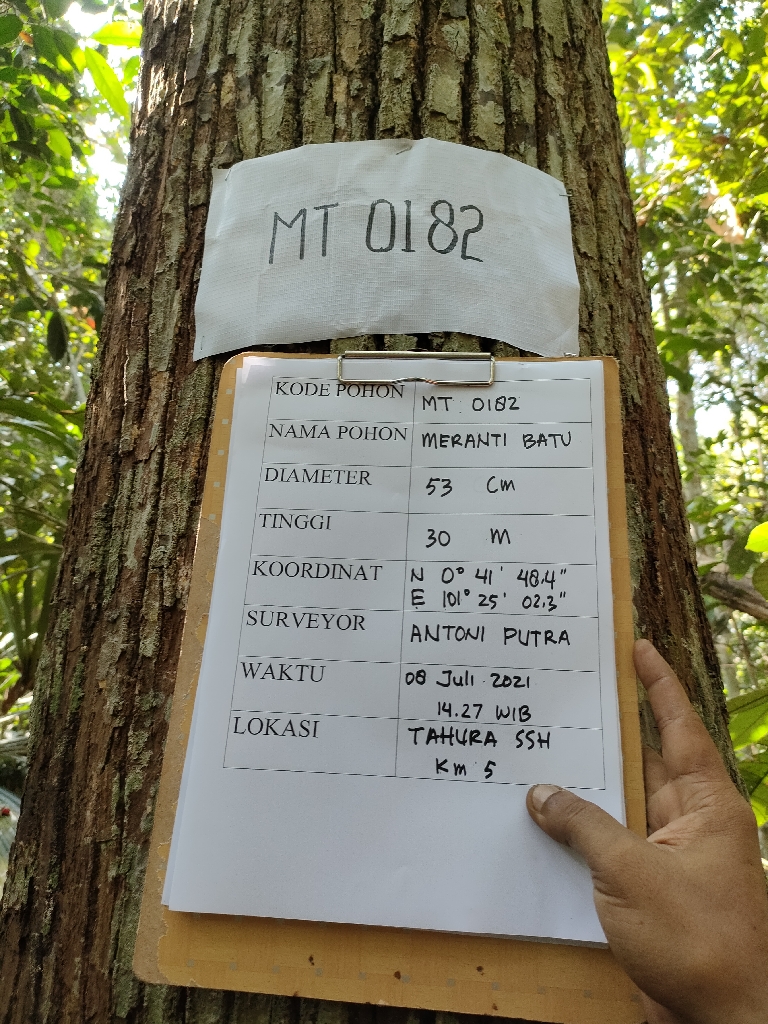 MT 0182
KODE POHON MT 0182
NAMA POHON MERANTI BATU
DIAMETER 53 Cm
TINGGI 30 M
KOORDINAT N 0° 41' 48.4"
E 101° 25' 02.3"
SURVEYOR ANTONI PUTRA
WAKTU 08 Juli 2021
14.27 WIB
LOKASI TAHURA SSH
Km 5